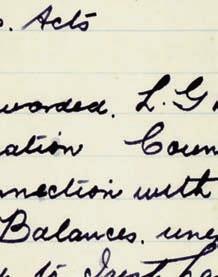 . Acts
warded. L. G
ation Coun
nnection with
Balances. une